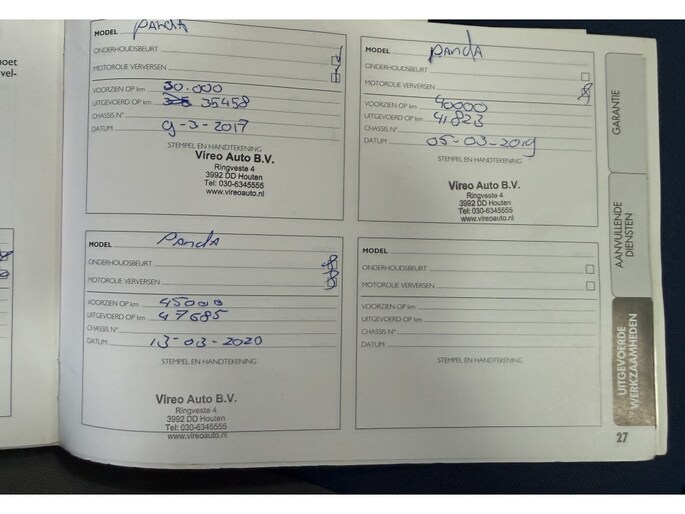 noet
vel-
MODEL PANdA
ONDERHOUDSBEURT
MOTOROLIE VERVERSEN
VOORZIEN OP km 30.000
UITGEVOERD OP km 35458
CHASSIS N°
DATUM 9-3-2017
STEMPEL EN HANDTEKENING
Vireo Auto B.V.
Ringveste 4
3992 DD Houten
Tel: 030-6345555
www.vireoauto.nl
MODEL PANDA
ONDERHOUDSBEURT
MOTOROLIE VERVERSEN
VOORZIEN OP km 40000
UITGEVOERD OP km 41823
CHASSIS N°
DATUM 05-03-2019
STEMPEL EN HANDTEKENING
Vireo Auto B.V.
Ringveste 4
3992 DD Houten
Tel: 030-6345555
www.vireoauto.nl
MODEL PANdA
ONDERHOUDSBEURT
MOTOROLIE VERVERSEN
VOORZIEN OP km 45000
UITGEVOERD OP km 47685
CHASSIS N°
DATUM 13-03-2020
STEMPEL EN HANDTEKENING
Vireo Auto B.V.
Ringveste 4
3992 DD Houten
Tel: 030-6345555
www.vireoauto.nl
MODEL
ONDERHOUDSBEURT
MOTOROLIE VERVERSEN
VOORZIEN OP km
UITGEVOERD OP km
CHASSIS N°
DATUM
STEMPEL EN HANDTEKENING
GARANTIE
AANVULLENDE
DIENSTEN
UITGEVOERDE
WERKZAAMHEDEN
27